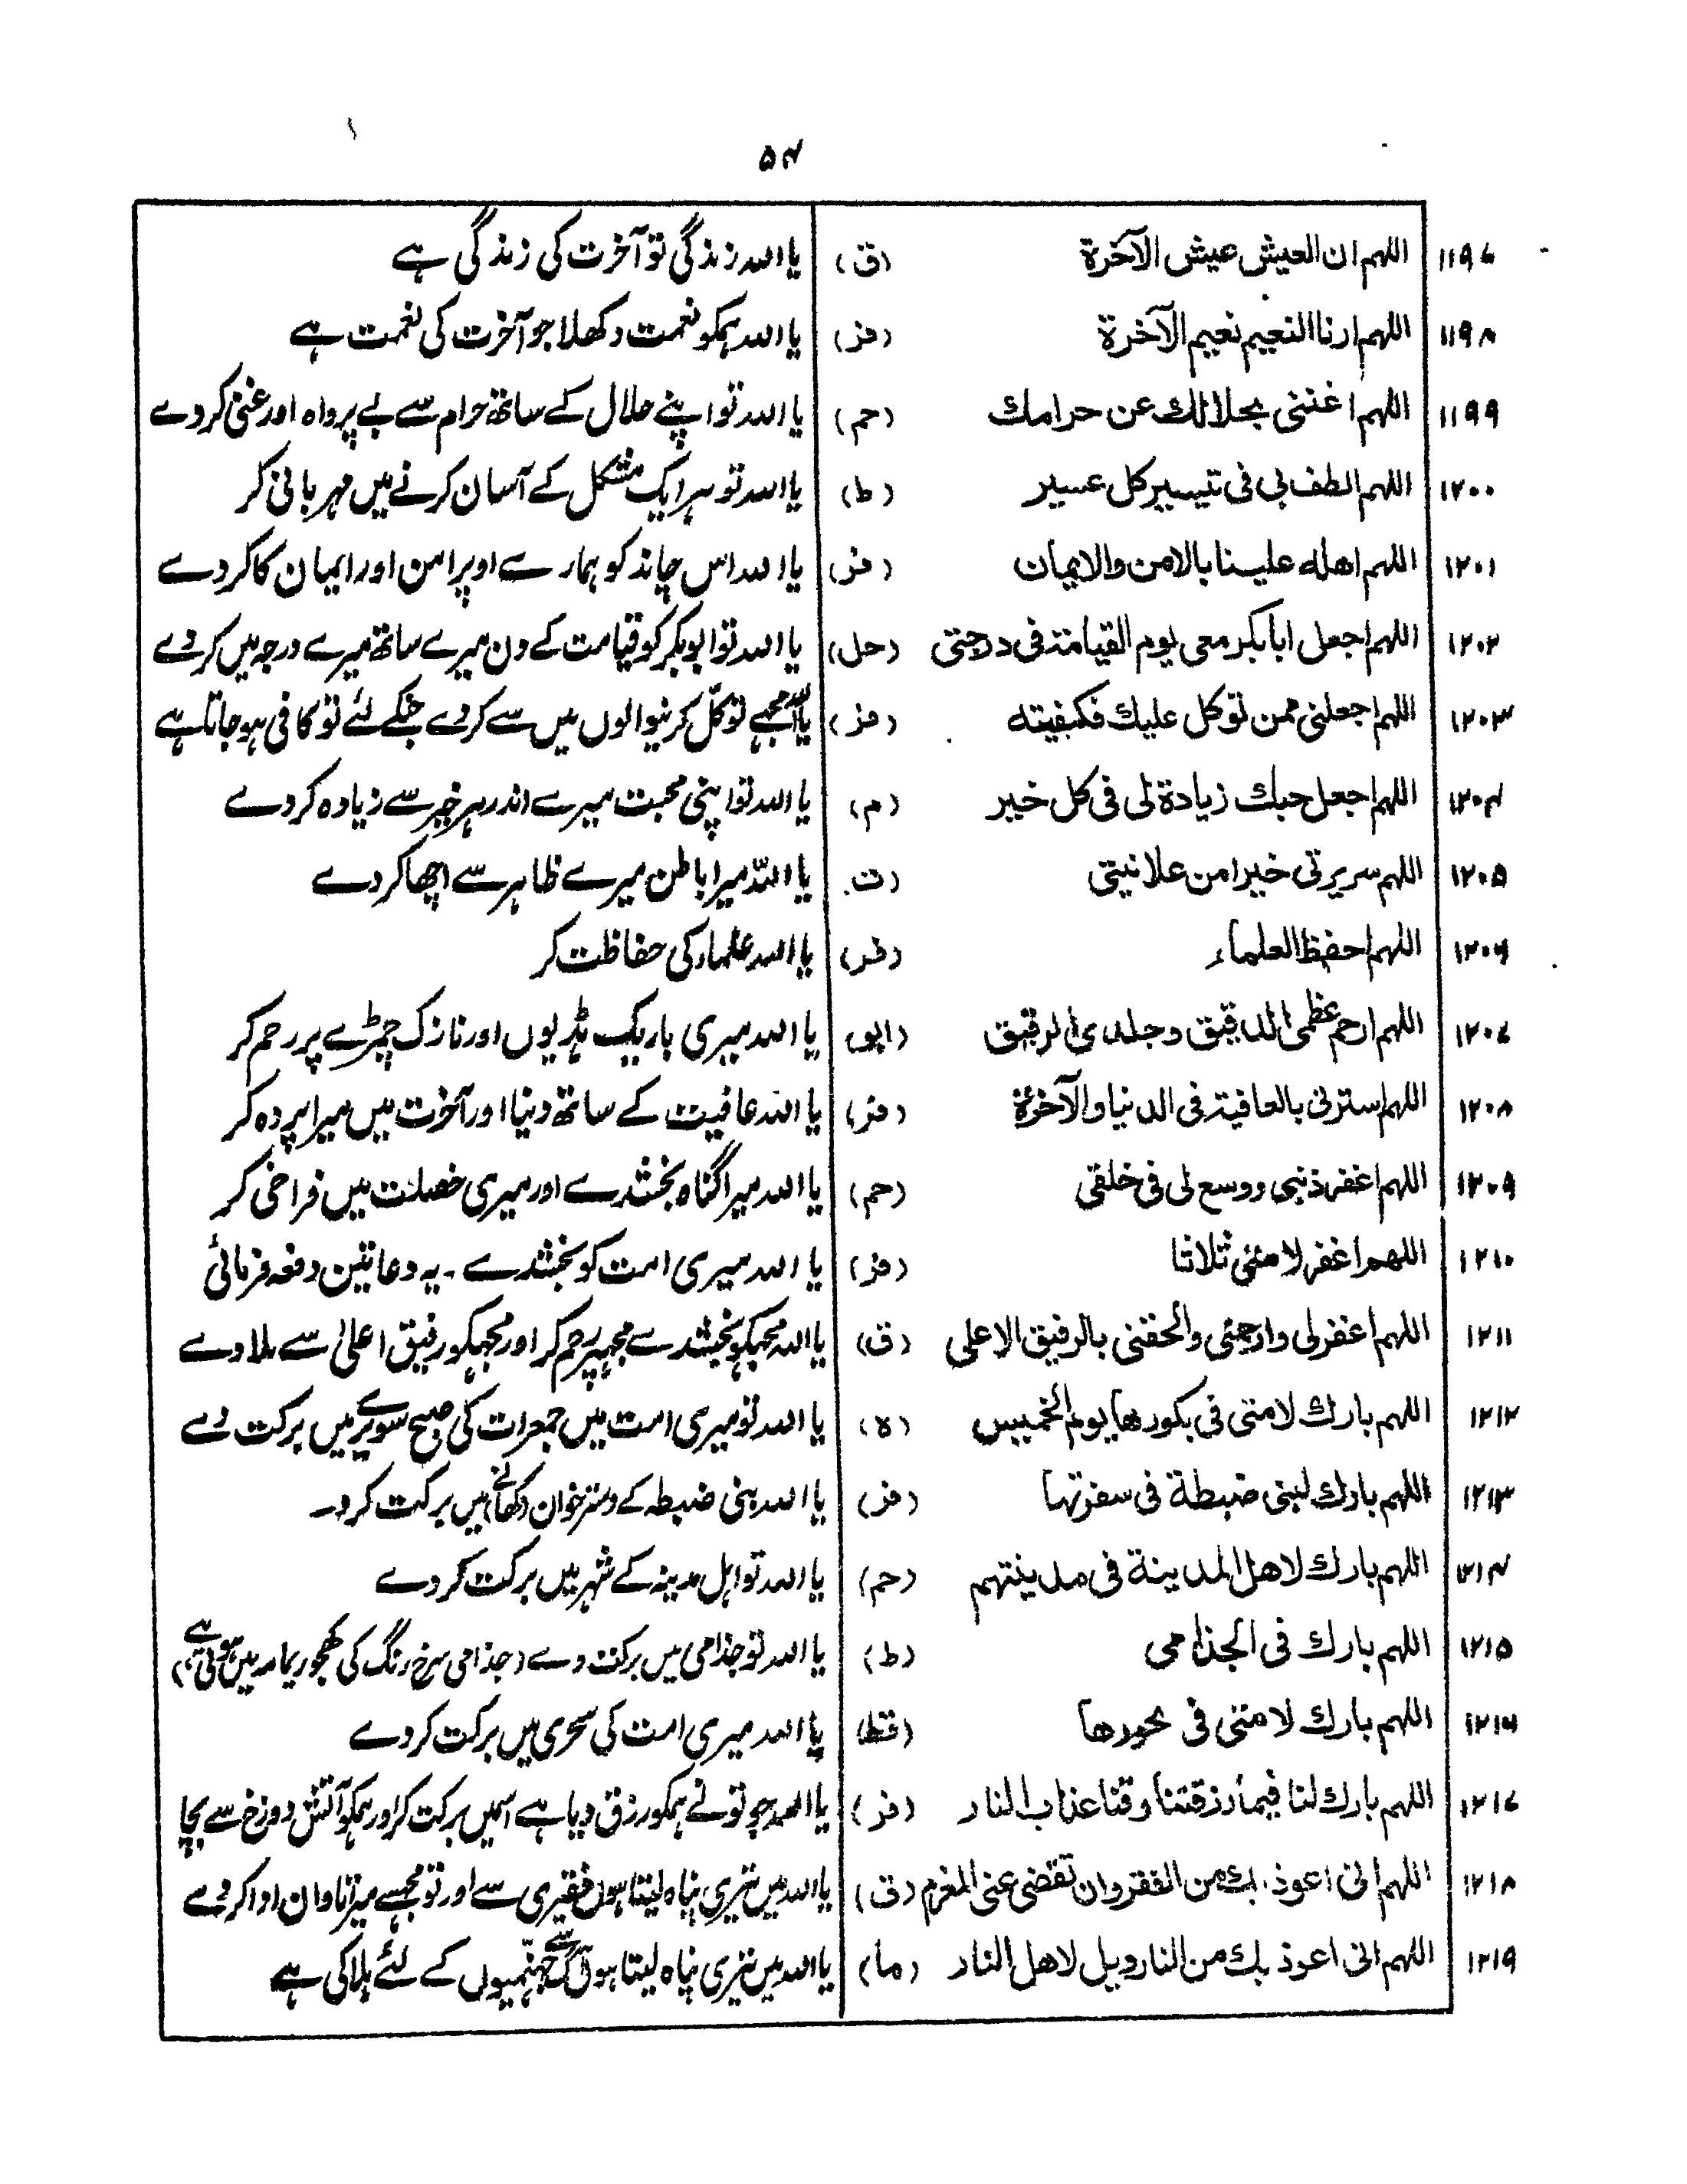 ۵۴
۱۱۹۷ اللهم ان العیش عیش الآخرة (ق) یا اللہ زندگی تو آخرت کی زندگی ہے
۱۱۹۸ اللهم ارنا النعیم نعیم الآخرة (فز) یا اللہ ہمکو نعمت دکھلا جو آخرت کی نعمت ہے
۱۱۹۹ اللهم اغننی بحلالك عن حرامك (حم) یا اللہ تو اپنے حلال کے ساتھ حرام سے بے پرواہ اور غنی کردے
۱۲۰۰ اللهم الطف بی فی تیسیر کل عسیر (ط) یا اللہ تو ہر ایک مشکل کے آسان کرنے میں مہربانی کر
۱۲۰۱ اللهم اهله علینا بالامن والایمان (فز) یا اللہ اس چاند کو ہمارے اوپر امن اور ایمان کا کردے
۱۲۰۲ اللهم اجعل ابابکر معی یوم القیامة فی درجتی (حل) یا اللہ تو ابوبکر کو قیامت کے دن میرے ساتھ میرے درجہ میں کردے
۱۲۰۳ اللهم اجعلنی ممن توکل علیك فکفیته (فز) یا اللہ مجھے توکّل کرنیوالوں میں سے کردے جنکے لئے تو کافی ہوجاتا ہے
۱۲۰۴ اللهم اجعل حبك زیادة لی فی کل خیر (م) یا اللہ تو اپنی محبت میرے اندر ہر خیر سے زیادہ کردے
۱۲۰۵ اللهم سریرتی خیرا من علانیتی (ت) یا اللہ میرا باطن میرے ظاہر سے اچھا کردے
۱۲۰۶ اللهم احفظ العلماء (فر) یا اللہ علماء کی حفاظت کر
۱۲۰۷ اللهم ارحم عظمی الدقیق وجلدی الرقیق (ابو) یا اللہ میری باریک ہڈیوں اور نازک چمڑے پر رحم کر
۱۲۰۸ اللهم استرنی بالعافیة فی الدنیا والآخرة (فز) یا اللہ عافیت کے ساتھ دنیا اور آخرت میں میرا پردہ کر
۱۲۰۹ اللهم اغفر ذنبی ووسع لی فی خلقی (حم) یا اللہ میرا گناہ بخشدے اور میری خصلت میں فراخی کر
۱۲۱۰ اللهم اغفر لامتی ثلاثا (فز) یا اللہ میری امت کو بخشدے ۔ یہ دعا تین دفعہ فرمائی
۱۲۱۱ اللهم اغفرلی وارحمنی والحقنی بالرفیق الاعلی (ق) یا اللہ مجھکو بخشدے مجھپر رحم کر اور مجھکو رفیق اعلیٰ سے ملادے
۱۲۱۲ اللهم بارك لامتی فی بکورها یوم الخمیس (ہ) یا اللہ تو میری امت میں جمعرات کی صبح سویرے میں برکت دے
۱۲۱۳ اللهم بارك لبنی ضبطة فی سفرتها (فز) یا اللہ بنی ضبطہ کے دسترخوان (کھانے) میں برکت کردے
۱۲۱۴ اللهم بارك لاهل المدینة فی مدینتهم (حم) یا اللہ تو اہل مدینہ کے شہر میں برکت کردے
۱۲۱۵ اللهم بارك فی الجذامی (ط) یا اللہ تو جذامی میں برکت دے (جذامی سرخ رنگ کی کھجور یمامہ میں ہوتی ہے)
۱۲۱۶ اللهم بارك لامتی فی سحورها (قط) یا اللہ میری امت کی سحری میں برکت کردے
۱۲۱۷ اللهم بارك لنا فیما رزقتنا وقنا عذاب النار (فر) یا اللہ جو تونے ہمکو رزق دیا ہے اسمیں برکت کر اور ہمکو آتش دوزخ سے بچا
۱۲۱۸ اللهم انی اعوذ بك من الفقر وان تقضی عنی المغرم (ق) یا اللہ میں تیری پناہ لیتا ہوں فقیری سے اور تو مجھسے میرا تاوان ادا کردے
۱۲۱۹ اللهم انی اعوذ بك من النار ویل لاهل النار (ما) یا اللہ میں تیری پناہ لیتا ہوں آگ سے جہنّمیوں کے لئے ہلاکی ہے